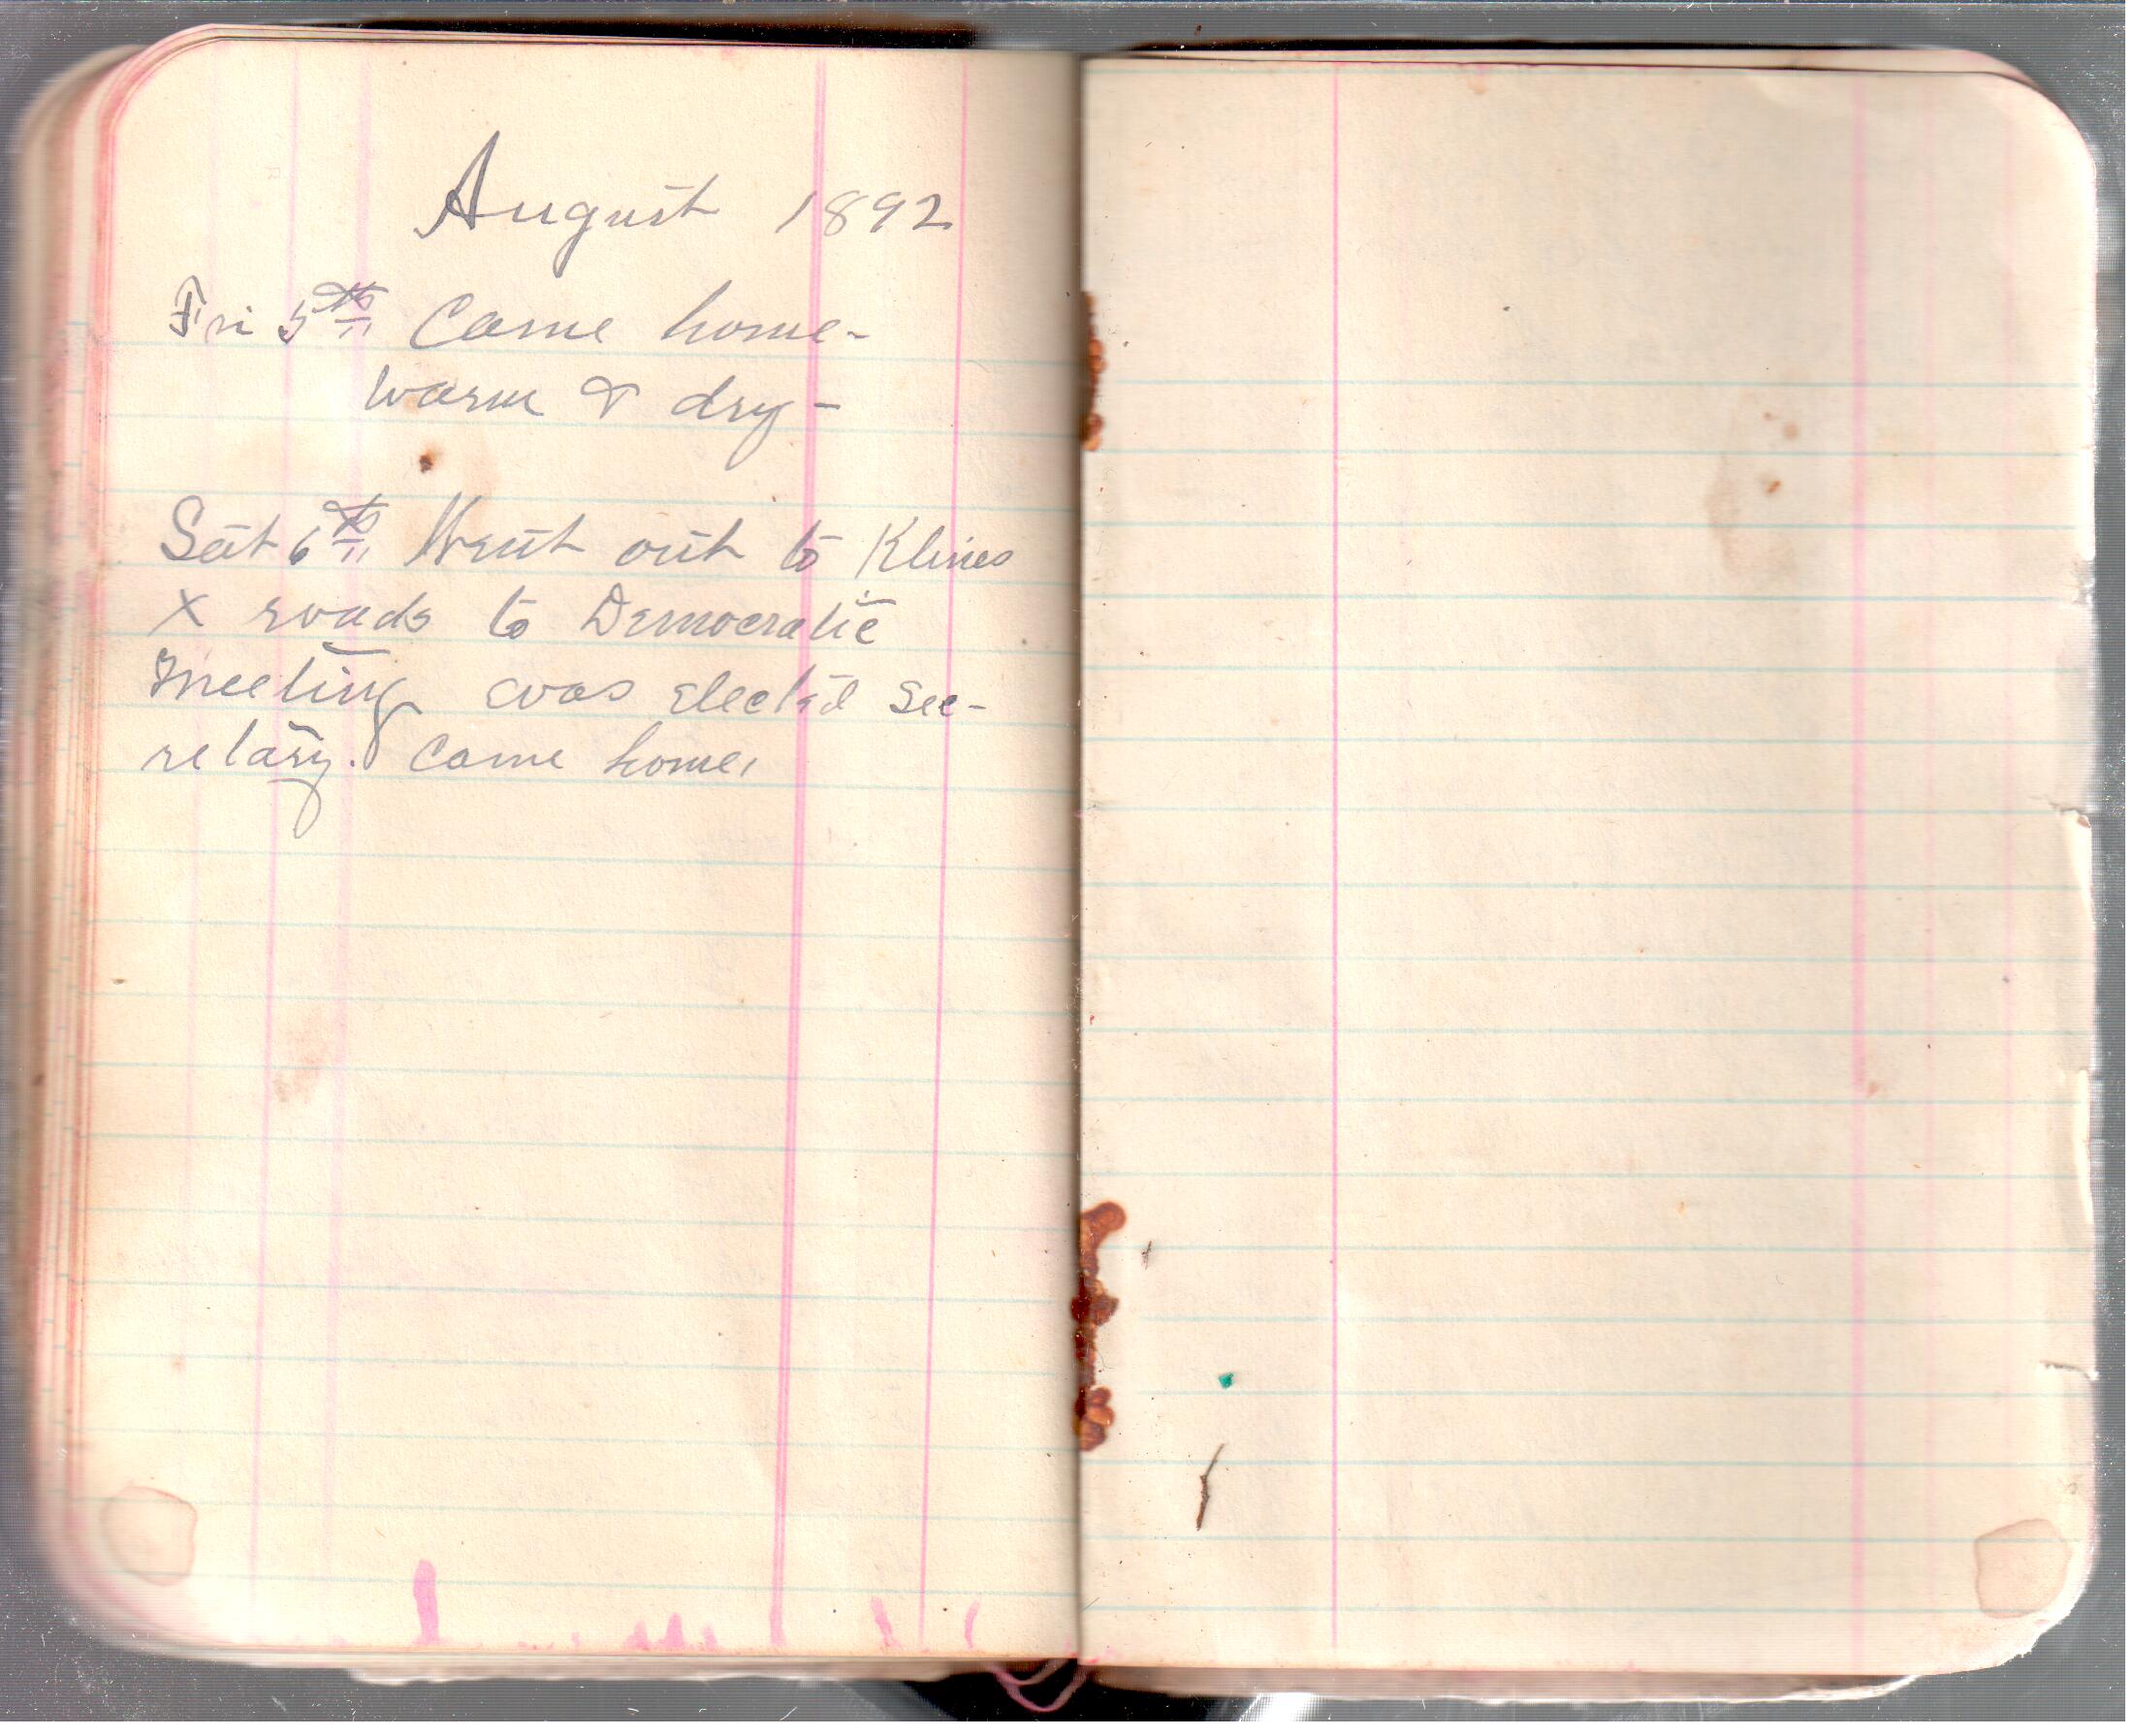 August 1892
Fri 5th Came home-
warm & dry-
Sat 6th Went out to Klines
X roads to Democratic
Meeting was elected sec-
retary. Came home.